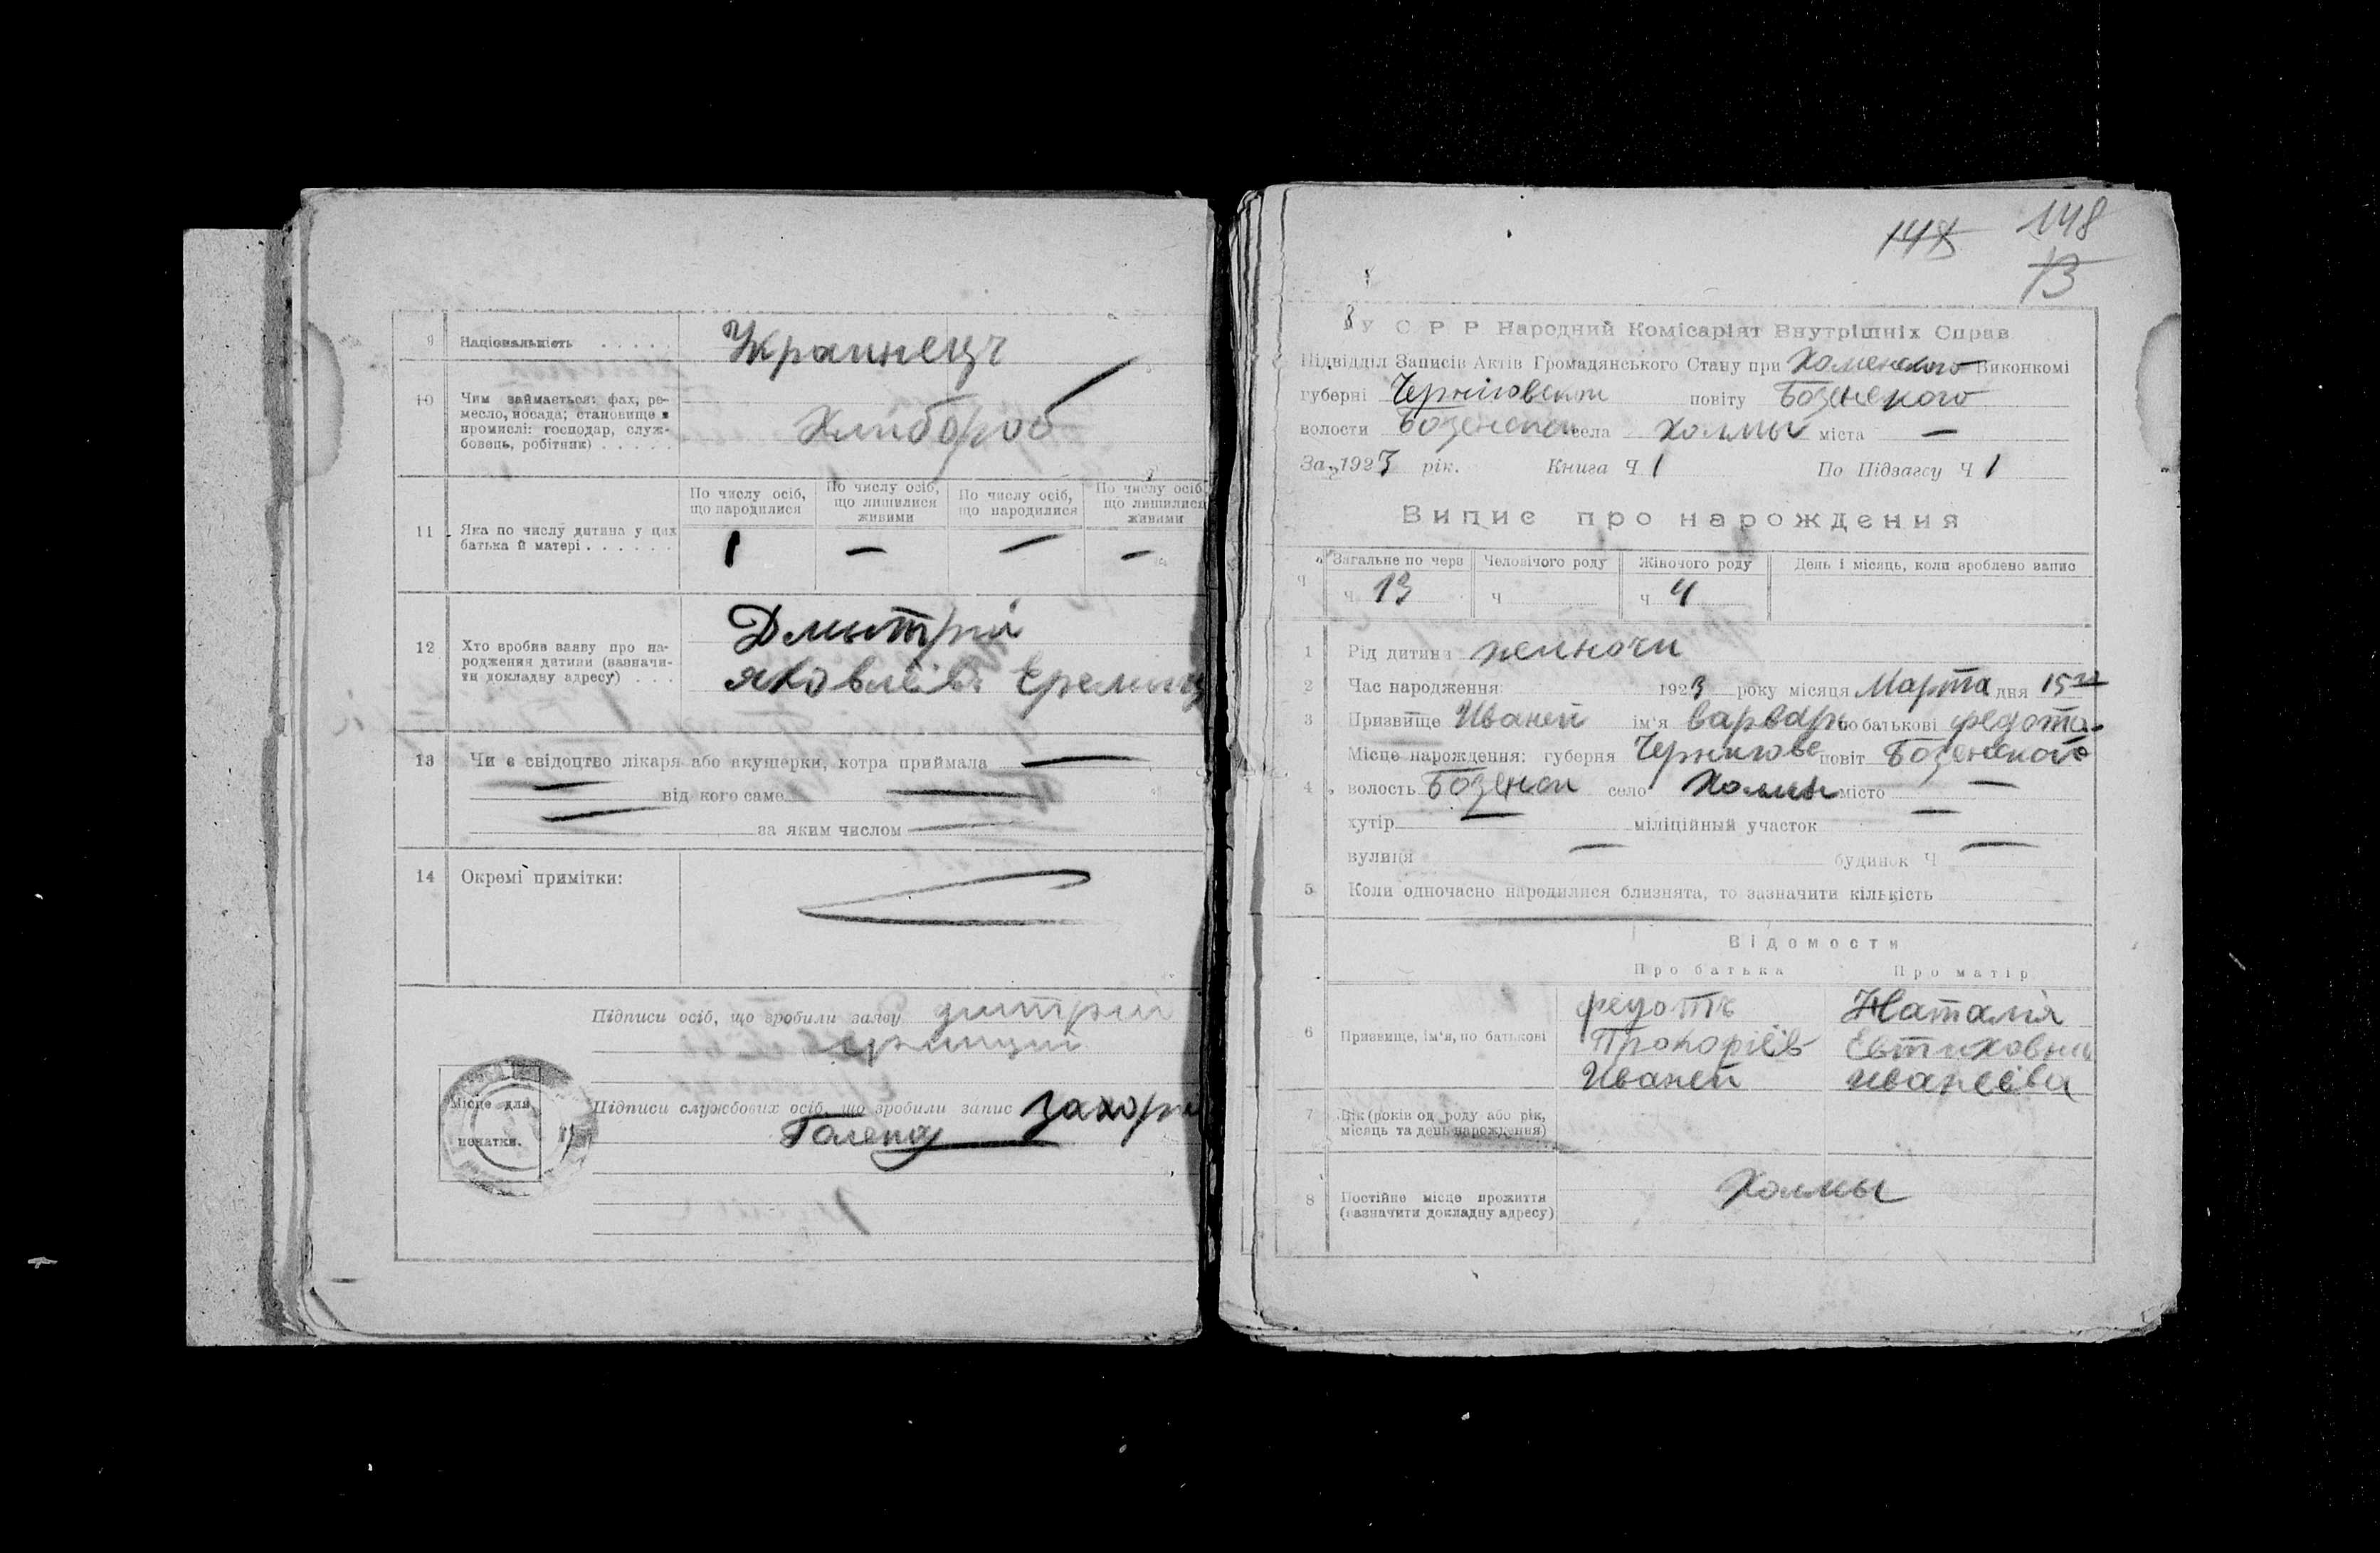 9 Національність . . . . . Украинець
10 Чим займається: фах, ре-
месло, посада; становище в
промислі: господар, служ-
бовець, робітник) . . . . . Хлибороб
По числу осіб, що народилися
По числу осіб, що лишилися живими
По числу осіб, що народилися
По числу осіб що лишилися живими
11 Яка по числу дитина у цих
батька й матері . . . . . . 1 — — —
12 Хто вробив заяву про на-
родження дитини (вазначи-
ти докладну адресу) . . .
Дмытрій
Яковлеів
13 Чи є свідоцтво лікаря або акушерки, котра приймала —
— від кого саме —
— за яким числом —
14 Окремі примітки:
Підписи осіб, що зробили заяву дитрий
Місце для
печатки.
Підписи службових осіб, що зробили запис
148 148
13
У С Р Р Народний Комісаріят Внутрішніх Справ
Підвідділ Записів Актів Громадянського Стану при Холменского Виконкомі
губерні Черніговскои повіту Бозенского
волости Бозенскои села Холмы міста —
За 1923 рік. Книга Ч 1 По Підзагсу Ч 1
Випис про нарождення
Загальне по черв Человічого роду Жіночого роду День і місяць, коли вроблено запис
Ч ч 13 ч ч 4
1 Рід дитини жиночи
2 Час народження: 1923 року місяця Марта дня 15го
3 Призвище Иваней ім'я Варвара по батькові Федота
Місце нарождення: губерня Чернигове повіт Бозенского
4 волость Бозенск село Холмы місто —
хутір — міліційный участок —
вулиця — будинок Ч —
5 Коли одночасно народилися близнята, то зазначити кількість
Відомости
Про батька Про матір
6 Призвище, ім'я, по батькові
Федотъ Наталія
Прокоріів Евтиховна
Иваней Иванеива
7 Вік (років од роду або рік,
місяць та день нарождення)
8 Постійне місце прожиття
(вазначити докладну адресу) Холмы